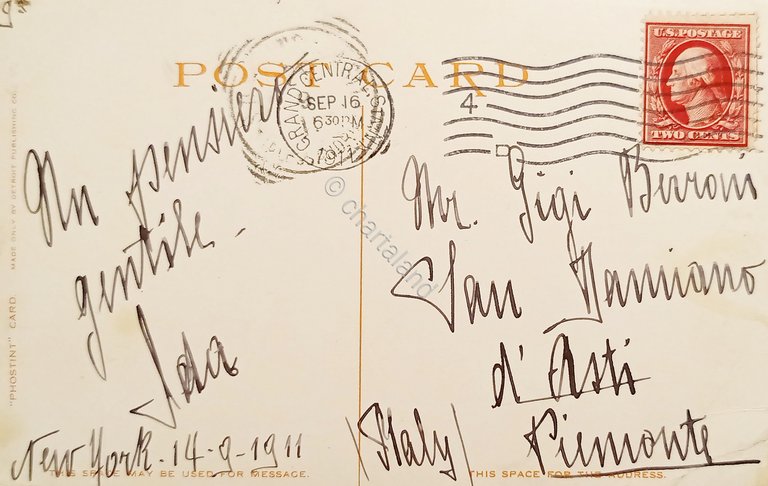 POST CARD
U.S. POSTAGE
TWO CENTS
GRAND CENTRAL STA.
SEP 16
6 30 PM
1911
4
Un pensiero
gentile -
Ida
New York. 14-9-1911
Mr. Gigi Berroni
San Damiano
d'Asti
Piemonte
(Italy)
© chartaland
"PHOSTINT" CARD. MADE ONLY BY DETROIT PUBLISHING CO.
THIS SPACE MAY BE USED FOR MESSAGE.
THIS SPACE FOR THE ADDRESS.